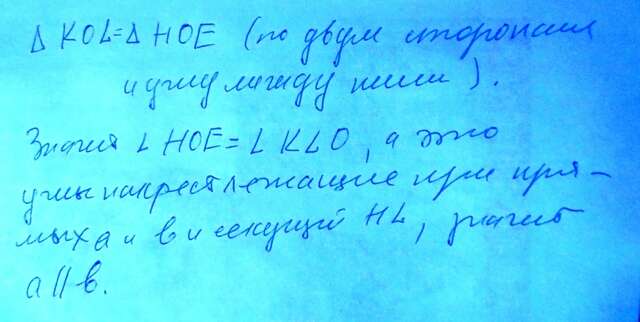 Δ KOL = Δ HOE (по двум сторонам
и углу между ними).
Значит ∠ HOE = ∠ KLO, а это
углы накрест лежащие при пря-
мых a и в и секущей HL, значит
a || в.